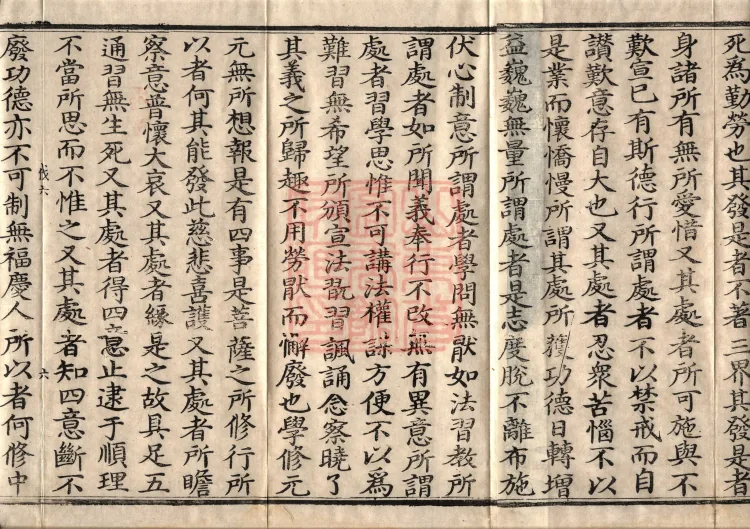 死為勤勞也其發是者不著三界其發是者
身諸所有無所愛惜又其處者所可施與不
歎宣已有斯德行所謂處者不以禁戒而自
讚歎意存自大也又其處者忍衆苦惱不以
是業而懷憍慢所謂其處所獲功德日轉增
益巍巍無量所謂處者是志度脫不離布施
伏心制意所謂處者學問無猒如法習教所
謂處者如所聞義奉行不改無有異意所謂
處者習學思惟不可講法權謀方便不以爲
難習無希望所頒宣法旣習諷誦念察曉了
其義之所歸趣不用勞猒而懈廢也學修元
元無所想報是有四事是菩薩之所修行所
以者何其能發此慈悲喜護又其處者所瞻
察意普懷大哀又其處者緣是之故具足五
通習無生死又其處者得四意止逮于順理
不當所思而不惟之又其處者知四意斷不
廢功德亦不可制無福慶人所以者何修中
伐六
六